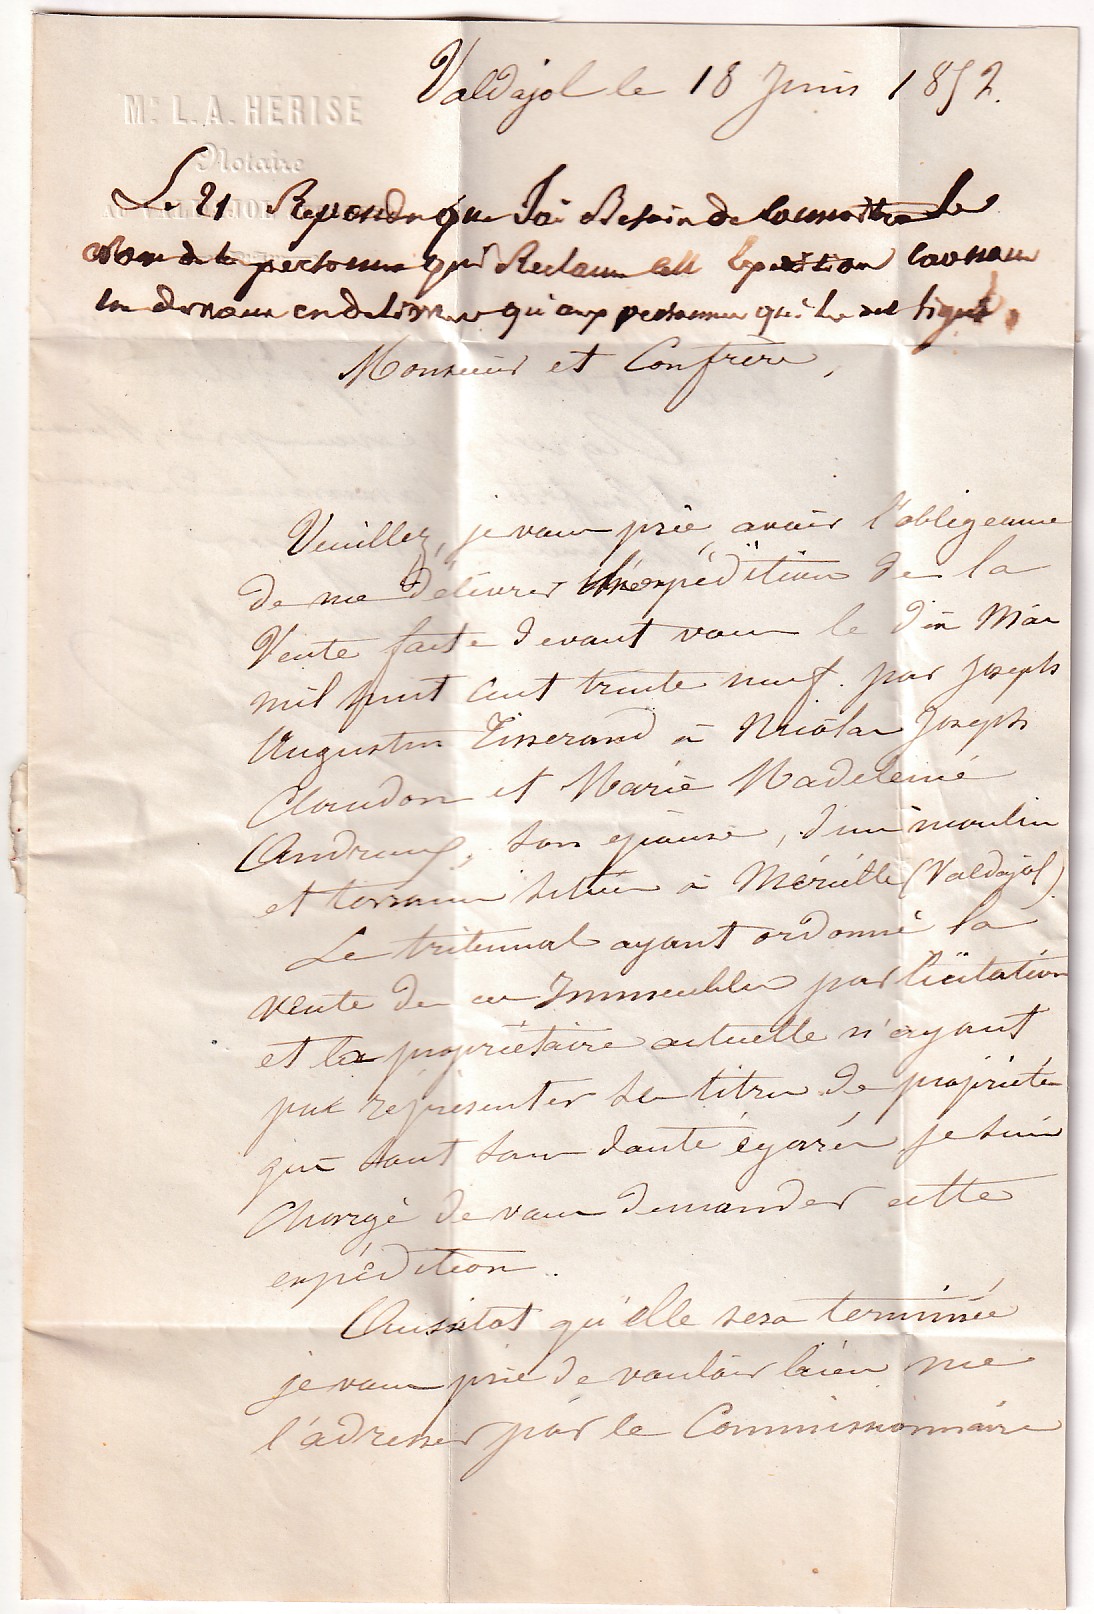 Mᵉ L. A. HÉRISÉ
Notaire
Valdajol le 18 Juin 1852.
Le 21 Repondu que J'ai Besoin de Connoitre le
Nom de la personne qui Reclame cette Expedition Comme
ne devant en delivrer qu'aux personnes qui
Monsieur et Confrère,
Veuillez, je vous prie, avoir l'obligeance
de me délivrer expédition de la
Vente faite devant vous le dix Mai
mil huit cent trente neuf. par Joseph
Augustin Tisserand à Nicolas Joseph
Claudon et Marie Madeleine
Andreux, son épouse, d'un moulin
et terrain situés à Méreille (Valdajol).
Le tribunal ayant ordonné la
vente de ces Immeubles par licitation
et la propriétaire actuelle n'ayant
pu représenter les titres de propriété
qui sont sans doute égarés je suis
Chargé de vous demander cette
expédition.
Aussitot qu'elle sera terminée
je vous prie de vouloir bien me
l'adresser par le Commissionnaire